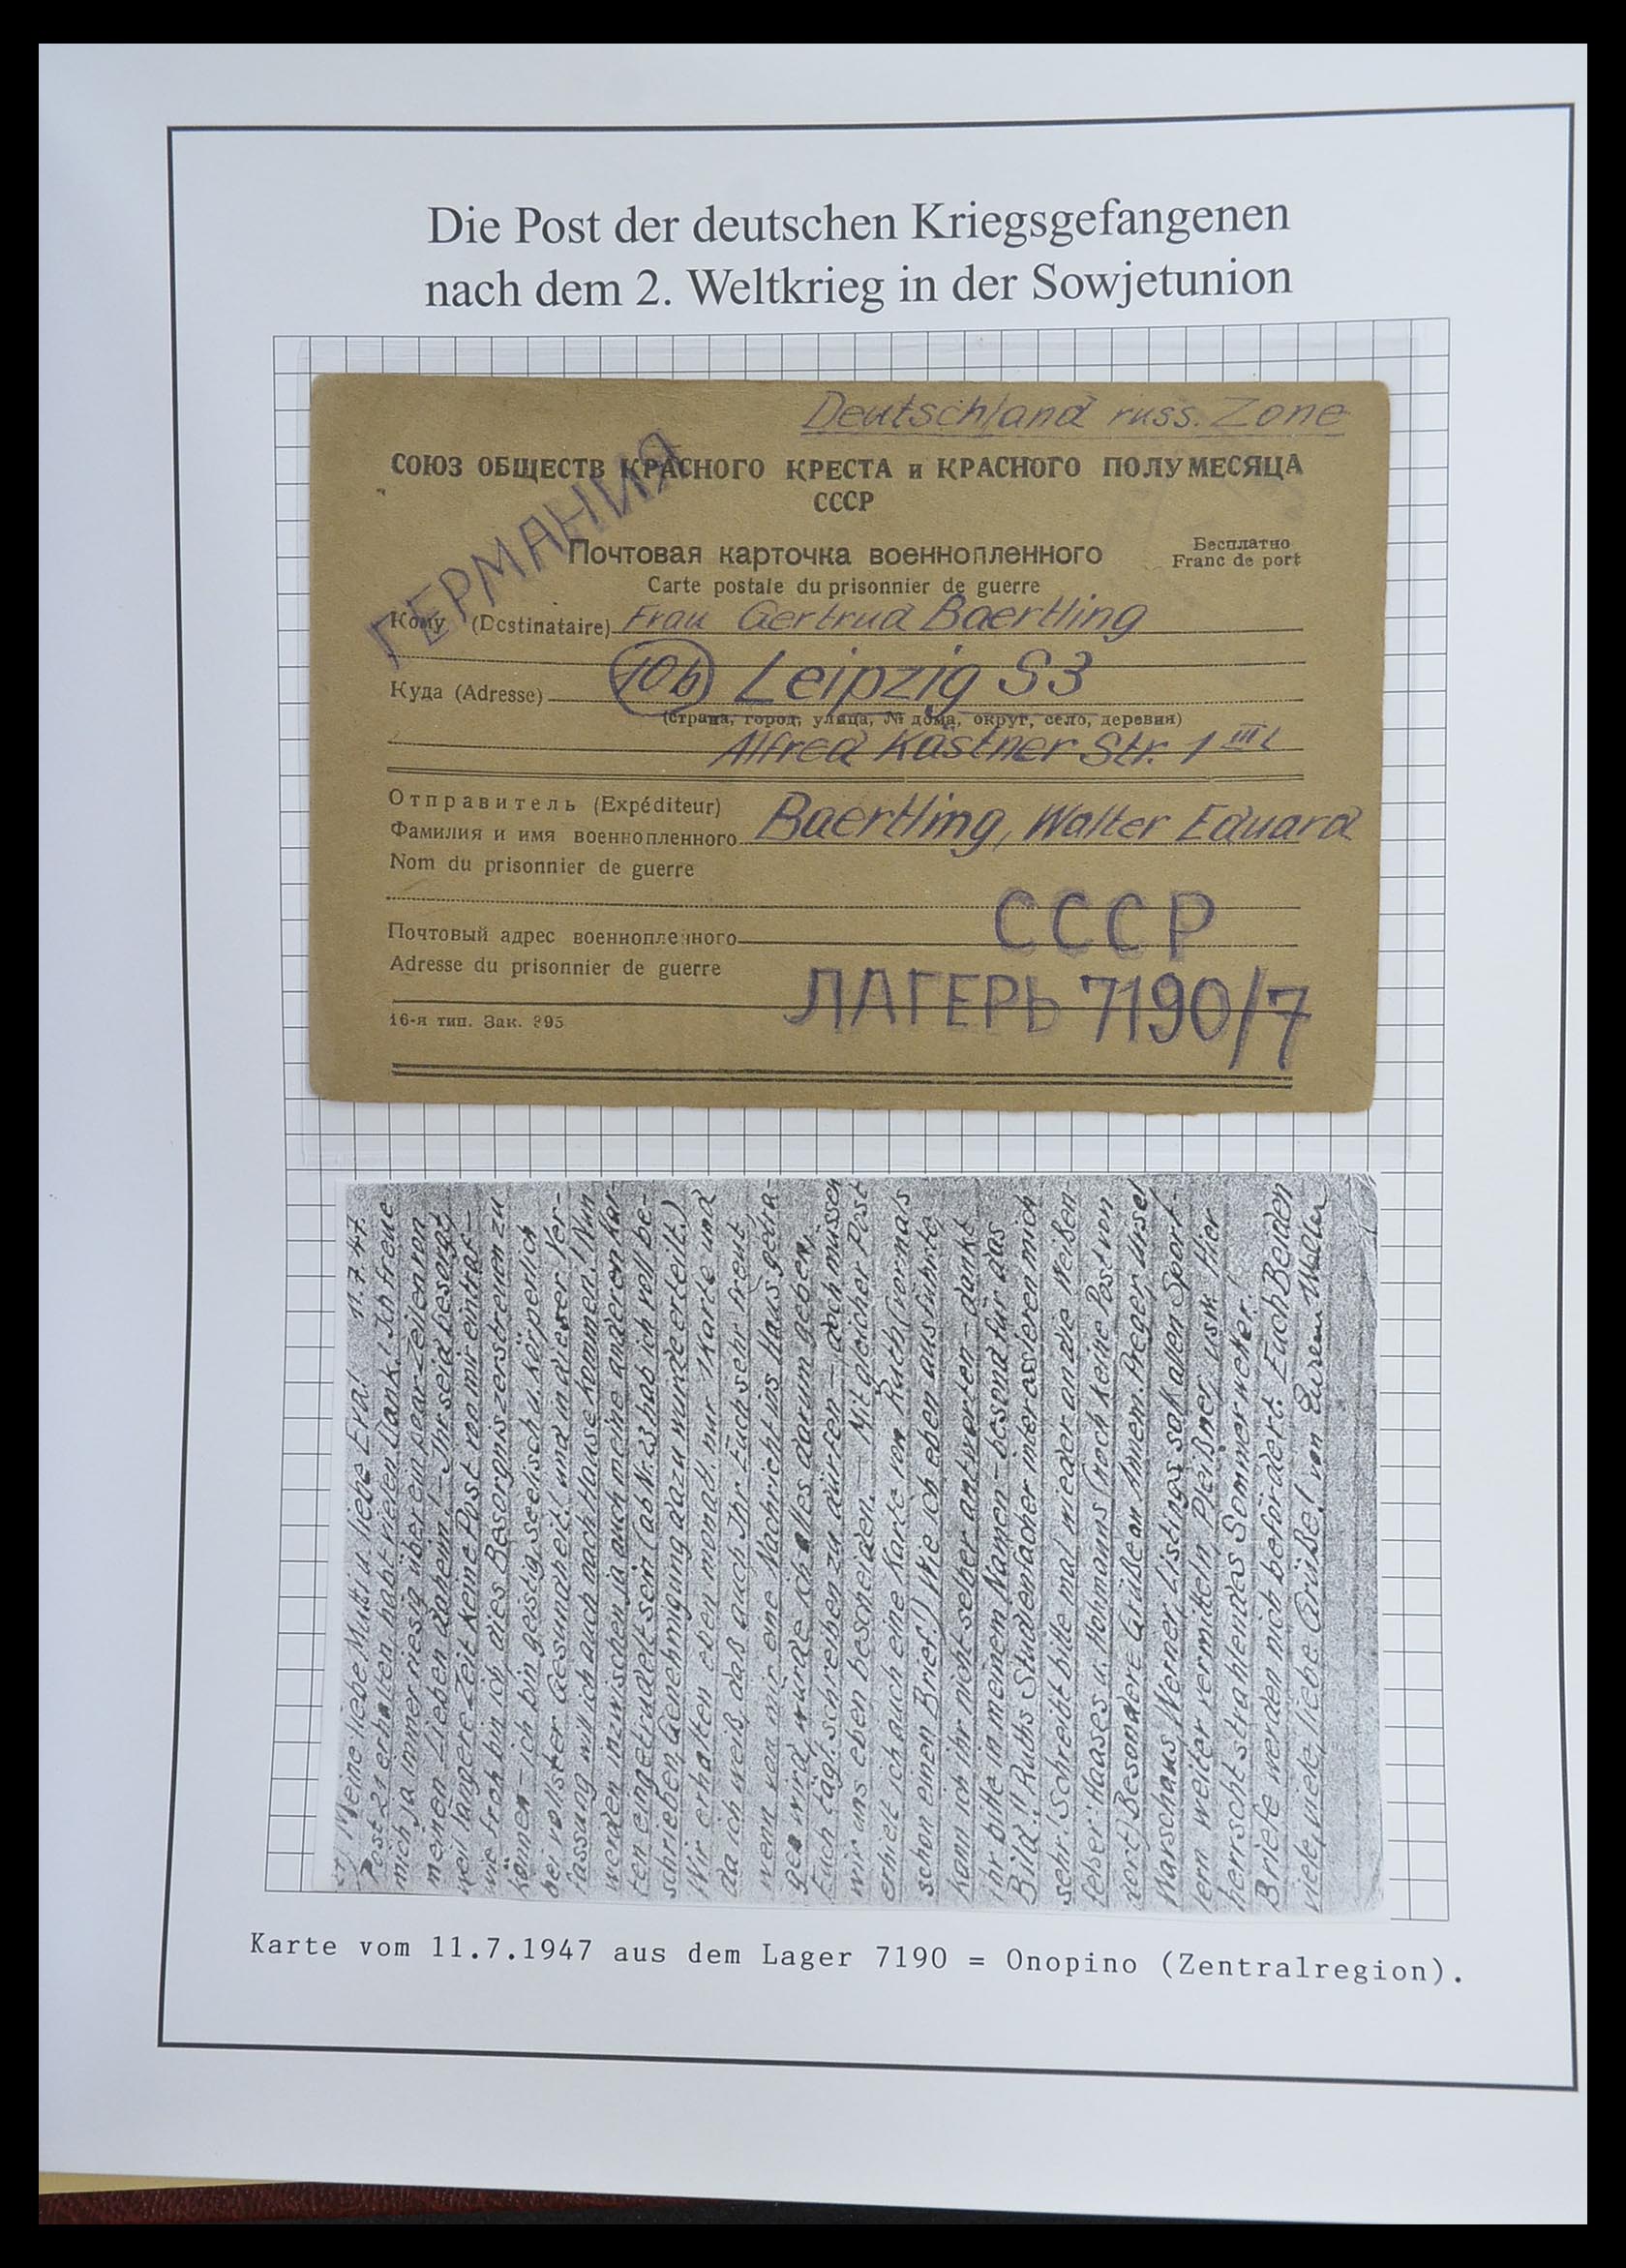 Die Post der deutschen Kriegsgefangenen
nach dem 2. Weltkrieg in der Sowjetunion
Deutschland russ. Zone
СОЮЗ ОБЩЕСТВ КРАСНОГО КРЕСТА и КРАСНОГО ПОЛУМЕСЯЦА
СССР
ГЕРМАНИЯ
Почтовая карточка военнопленного
Бесплатно
Franc de port
Carte postale du prisonnier de guerre
Кому (Destinataire) Frau Gertrud Baertling
Куда (Adresse) 10b Leipzig S3
(страна, город, улица, № дома, округ, село, деревня)
Alfred Kästner Str. 1 III l
Отправитель (Expéditeur)
Фамилия и имя военнопленного Baertling, Walter Eduard
Nom du prisonnier de guerre
Почтовый адрес военнопленного СССР
Adresse du prisonnier de guerre
ЛАГЕРЬ 7190/7
16-я тип. Зак. 895
Meine liebe Mutti u. liebe Eva! 11.7.47.
Post 21 erhalten, habt vielen Dank! Ich freue
mich ja immer riesig über ein paar Zeilen von
meinen Lieben daheim! – Ihr seid besorgt,
weil längere Zeit keine Post von mir eintraf –
wie froh bin ich, dies Besorgnis zerstreuen zu
können – ich bin geistig, seelisch u. körperlich
bei vollster Gesundheit! und in dieser Ver-
fassung will ich auch nach Hause kommen! Nun
werden inzwischen ja auch meine anderen Kar-
ten eingetrudelt sein (ab Nr. 23 hab ich voll be-
schrieben, Genehmigung dazu wurde erteilt.)
Wir erhalten eben monatl. nur 1 Karte und
da ich weiß, daß auch Ihr Euch sehr freut,
wenn von mir eine Nachricht ins Haus getra-
gen wird, würde ich alles darum geben,
Euch tägl. schreiben zu dürfen – doch müssen
wir uns eben bescheiden. – Mit gleicher Post
erhielt ich auch eine Karte von Ruth (vormals
schon einen Brief!) Wie ich eben ausführte,
kann ich ihr nicht selber antworten – dankt
ihr bitte in meinem Namen – besond. für das
Bild!! Ruths Studienfächer interessieren mich
sehr! Schreibt bitte mal wieder an die Weißen-
felser: Haases u. Hohmanns (noch keine Post von
dort) Besondere Grüße an Annem. Preger, Ursel
Warschaus, Werner, Listings, sof. allen Sport-
lern weiter vermitteln, Pleißner, usw. Hier
herrscht strahlendes Sommerwetter!
Briefe werden nich befördert. Euch Beiden
viele, viele, liebe Grüße! von Eurem Walter
Karte vom 11.7.1947 aus dem Lager 7190 = Onopino (Zentralregion).